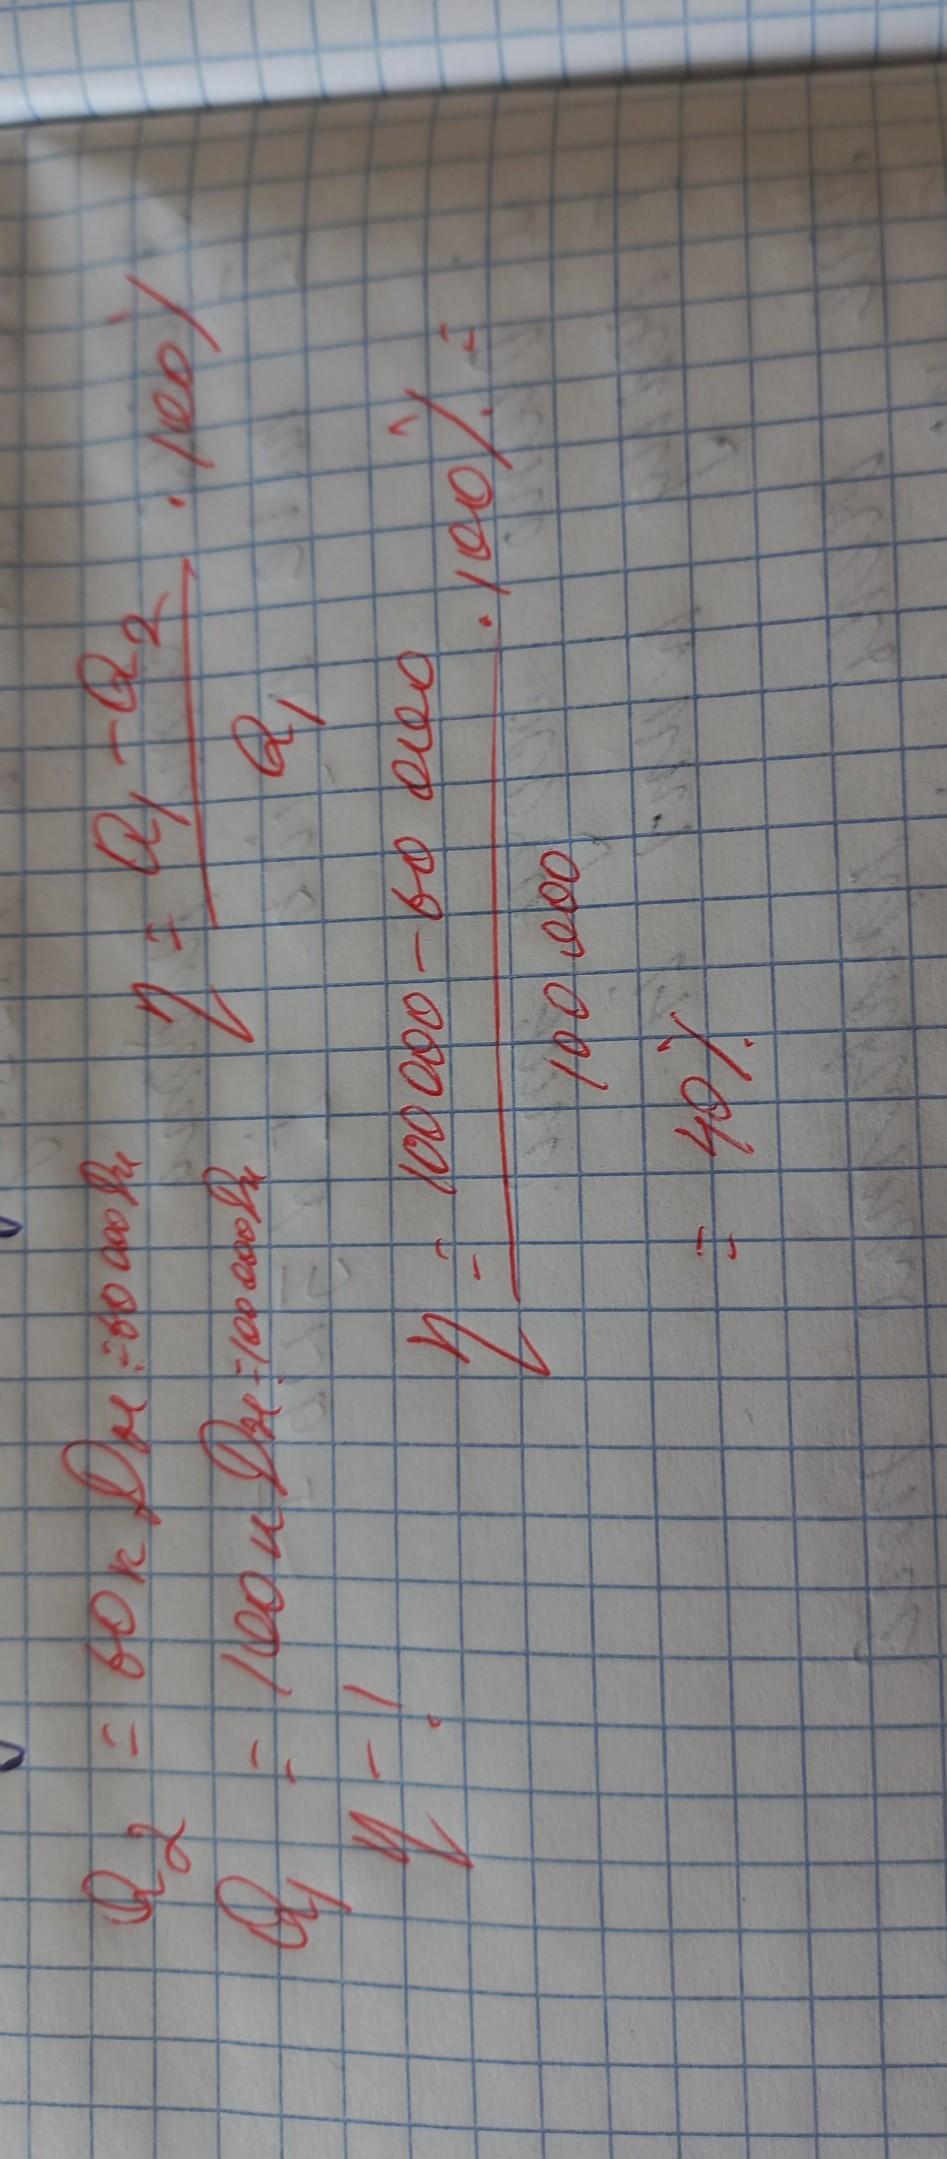 Q₂ = 60 кДж = 60 000 Дж
Q₁ = 100 кДж = 100 000 Дж
η - ?
η = (Q₁ - Q₂) / Q₁ · 100%
η = (100 000 - 60 000) / 100 000 · 100% =
= 40%